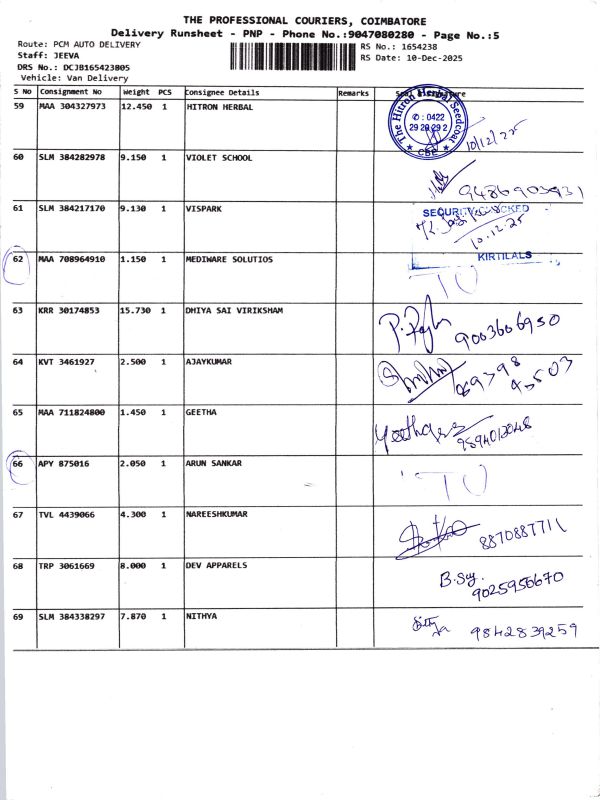 THE PROFESSIONAL COURIERS, COIMBATORE
Delivery Runsheet - PNP - Phone No.:9047080280 - Page No.:5
Route: PCM AUTO DELIVERY
Staff: JEEVA
DRS No.: DCJB165423805
Vehicle: Van Delivery
RS No.: 1654238
RS Date: 10-Dec-2025
S No Consignment No Weight PCS Consignee Details Remarks
59 MAA 304327973 12.450 1 HITRON HERBAL
The Hitron Herbal Seedcoat
✆ : 0422
CBE
10/12/25
60 SLM 384282978 9.150 1 VIOLET SCHOOL
9486903931
61 SLM 384217170 9.130 1 VISPARK
10.12.25
62 MAA 708964910 1.150 1 MEDIWARE SOLUTIOS
KIRTILALS
TU
63 KRR 30174853 15.730 1 DHIYA SAI VIRIKSHAM
9003606950
64 KVT 3461927 2.500 1 AJAYKUMAR
65 MAA 711824800 1.450 1 GEETHA
66 APY 875016 2.050 1 ARUN SANKAR
TU
67 TVL 4439066 4.300 1 NAREESHKUMAR
8870887711
68 TRP 3061669 8.000 1 DEV APPARELS
9025956670
69 SLM 384338297 7.870 1 NITHYA
9842839259